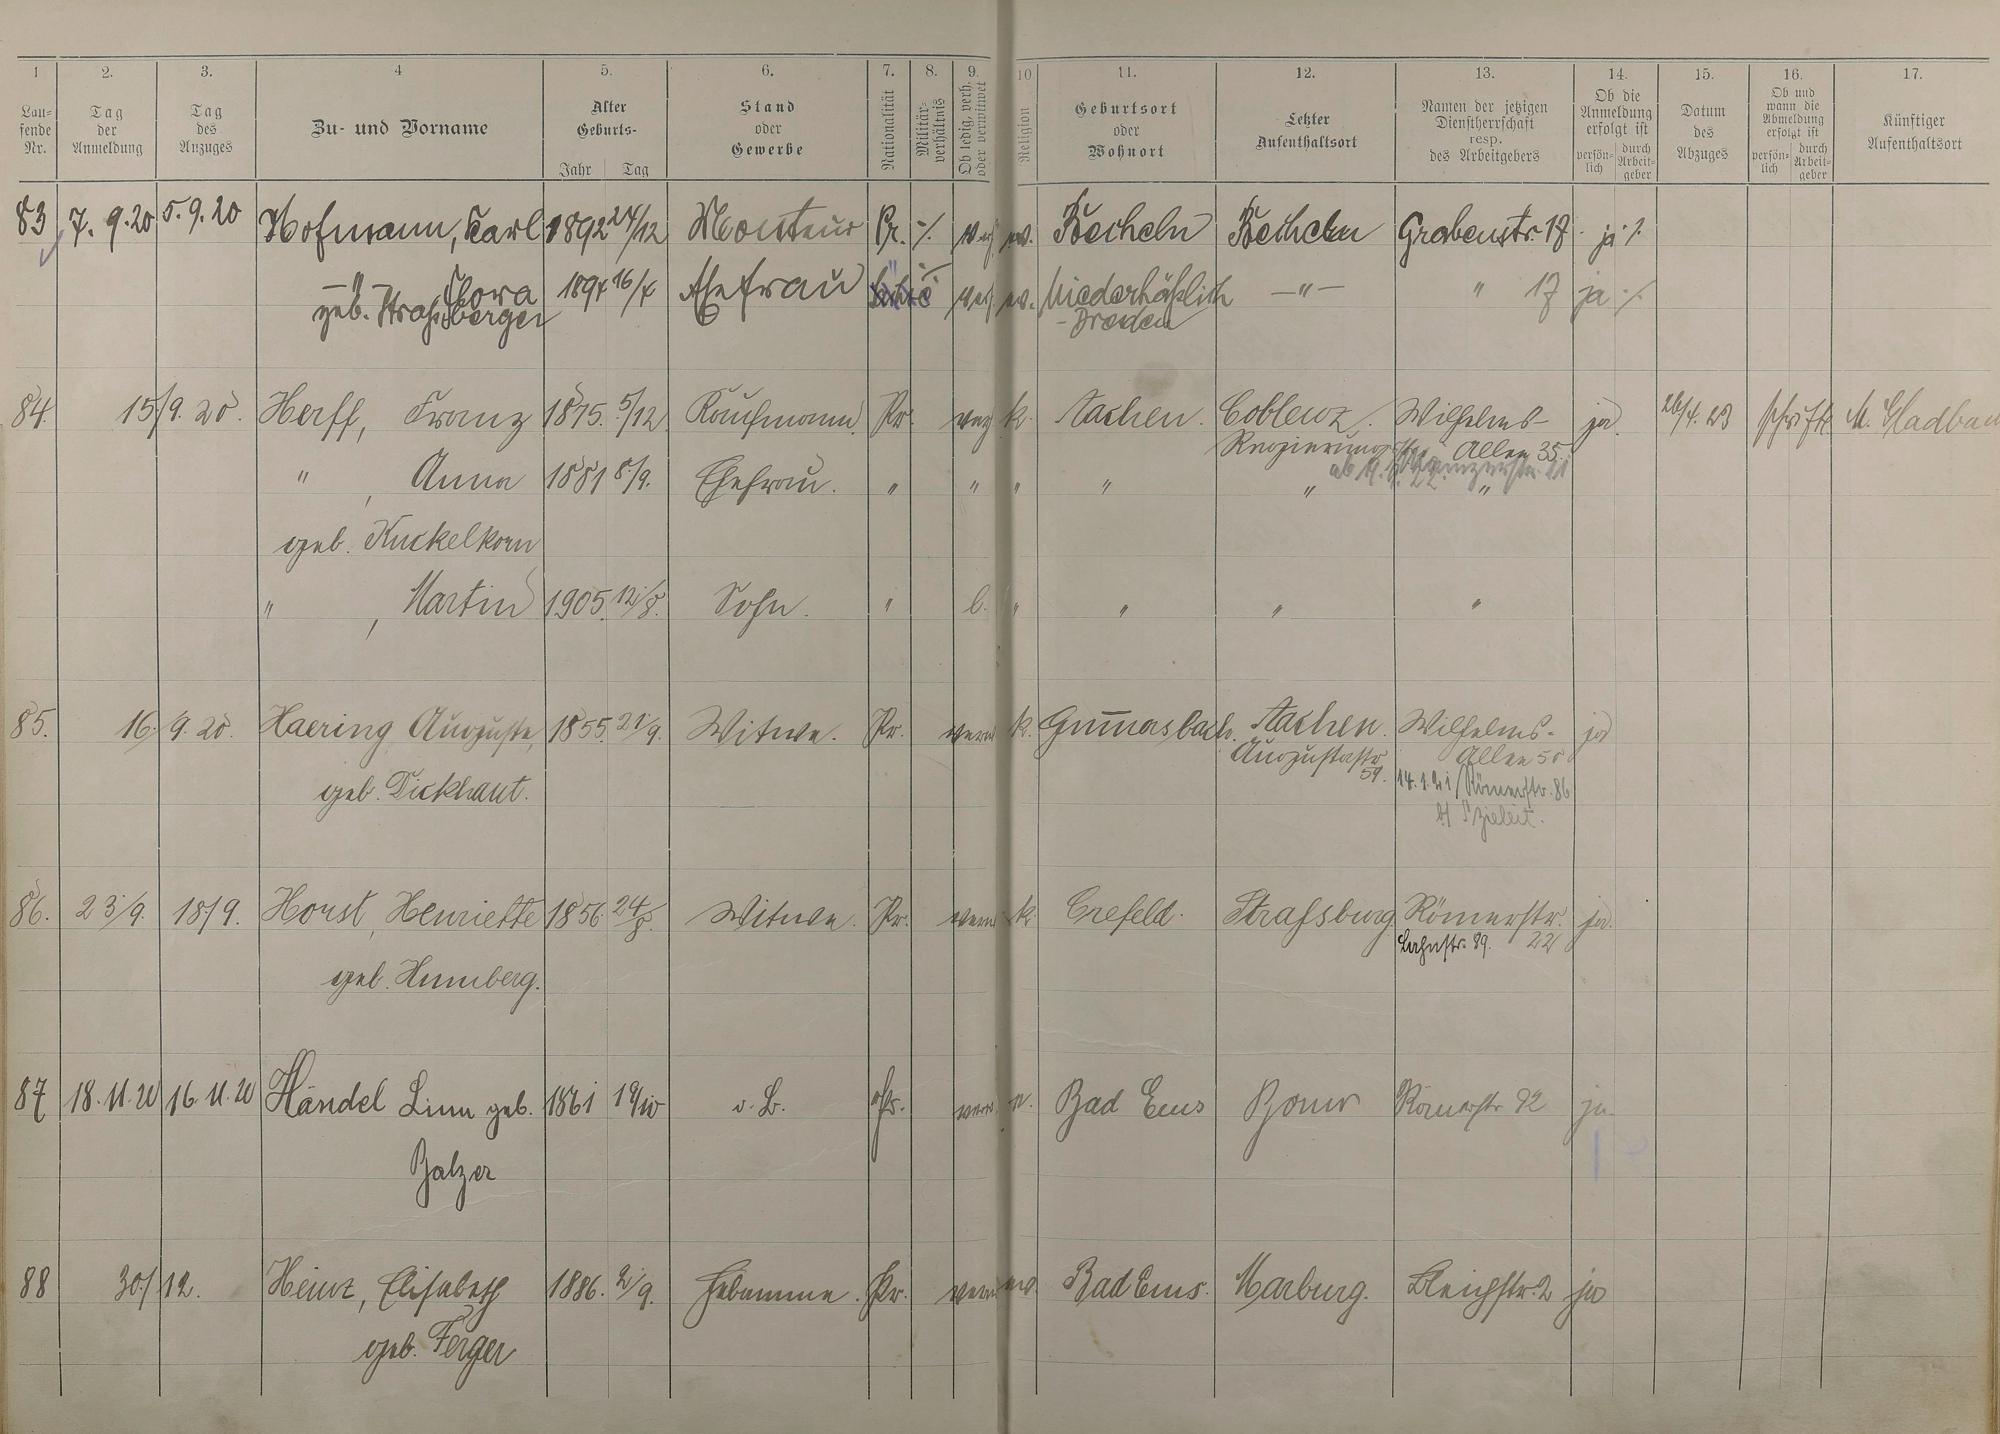 1 2. 3. 4 5. 6. 7. 8. 9. 10 11. 12. 13. 14. 15. 16. 17.
Lau-
fende
Nr.
Tag
der
Anmeldung
Tag
des
Anzuges
Zu- und Vorname
Alter
Geburts-
Jahr Tag
Stand
oder
Gewerbe
Nationalität
Militär-
verhältnis
Ob ledig, verh.
oder verwitwet
Religion
Geburtsort
oder
Wohnort
Letzter
Aufenthaltsort
Namen der jetzigen
Dienstherrschaft
resp.
des Arbeitgebers
Ob die
Anmeldung
erfolgt ist
persön-
lich
durch
Arbeit-
geber
Datum
des
Abzuges
Ob und
wann die
Abmeldung
erfolgt ist
persön-
lich
durch
Arbeit-
geber
Künftiger
Aufenthaltsort
83 7. 9. 20 5. 9. 20 Hofmann, Karl 1892 24/12 Monteur Pr. ./. verh. ev. Becheln Becheln Grabenstr. 17 ja ./.
—"— Dora 1894 16/4 Ehefrau ./. verh. ev. Niederhäßlich —"— " 17 ja ./.
geb. Straßberger - Dresden
84. 15/9. 20. Herff, Franz 1875. 5/12 Kaufmann. Pr. verh. k. Aachen. Coblenz. Wilhelms- ja. 26/4. 23 schriftl. M. Gladbach
Regierungsstr. Allee 35.
" , Anna 1881 8/9. Ehefrau. " " " " " "
geb. Kuckelkorn
" , Martin 1905. 12/8. Sohn. " l. " " " "
85. 16. 9. 20. Haering Auguste, 1855. 21/9. Witwe. Pr. verw. k. Gum̅ersbach. Aachen. Wilhelms- ja
Augustastr. Allee 50
59.
geb. Dickhaut. 14. 1. 21 Römerstr. 86
86. 23/9. 18/9. Horst, Henriette 1856. 24/8. Witwe. Pr. verw. k. Crefeld. Straßburg Römerstr. ja.
Lahnstr. 89. 22
geb. Humberg.
87 18. 11. 20 16. 11. 20 Händel Lina geb. 1861 19/10 o. B. Pr. verw. Bad Ems Bonn Römerstr 92 ja
Balzer
88 30/12. Heinz, Elisabeth 1886. 2/9. Hebamme. Pr. verw. ev. Bad Ems. Marburg. Bleichstr. 2 ja
geb. Ferger